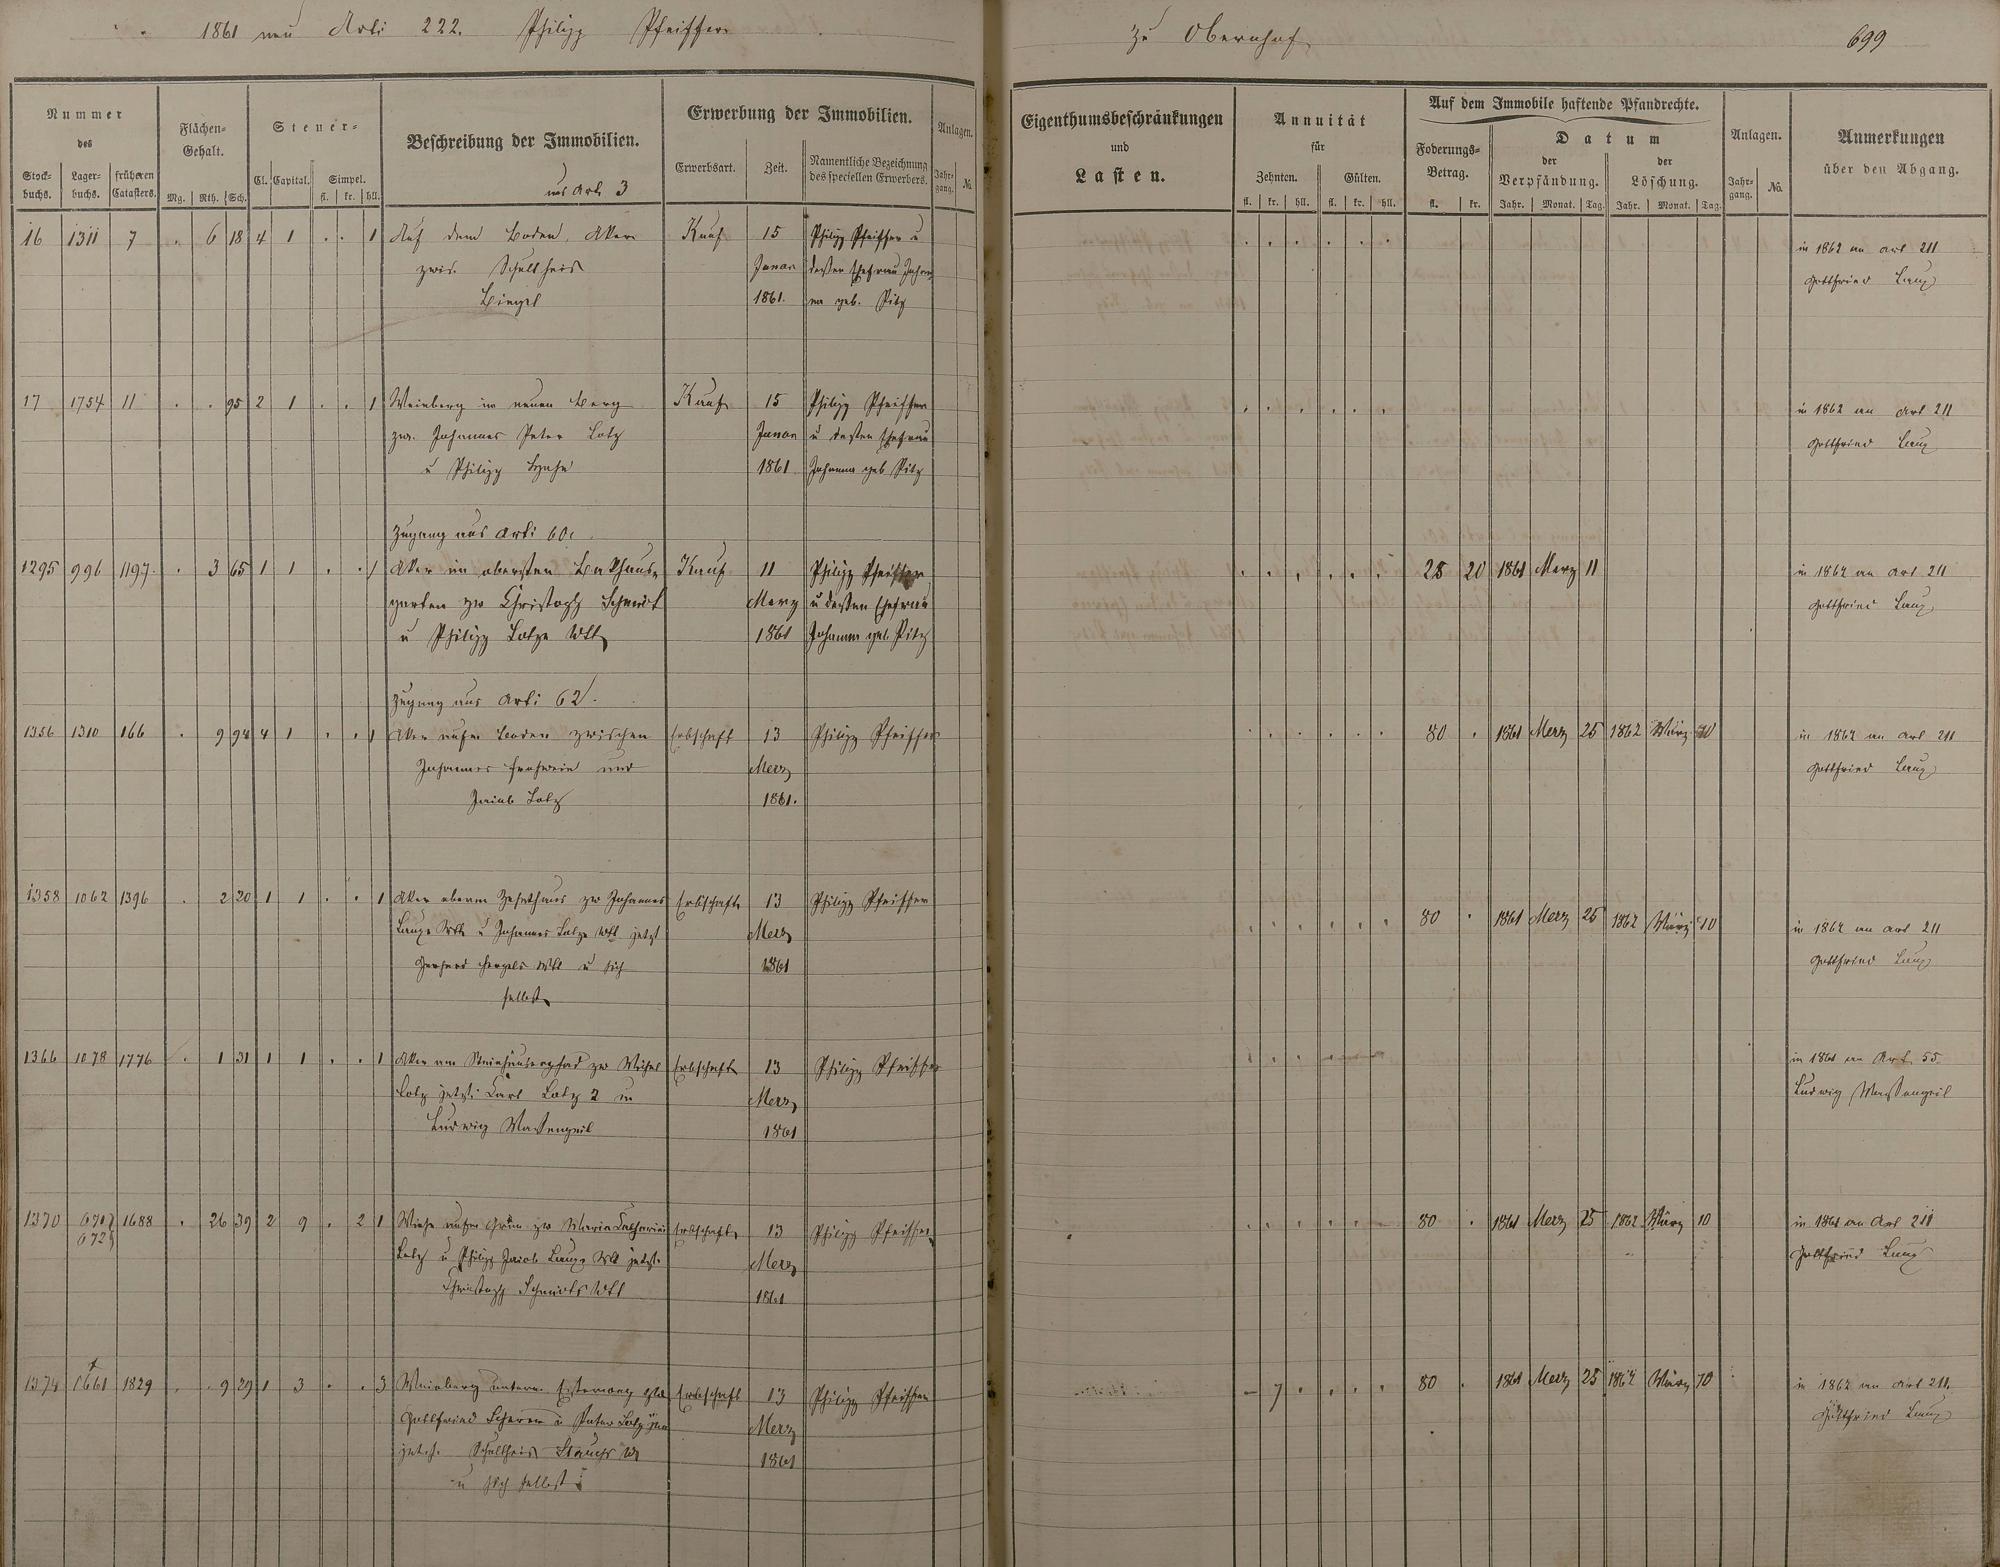 1861 neu Arti 222. Philipp Pfeiffer
zu Obernhof
699
Nummer
des
Stock-
buchs.
Lager-
buchs.
früheren
Catasters.
Flächen-
Gehalt.
Mg. Rth. Sch.
Steuer-
Cl. Capital. Simpel.
fl. kr. hll.
Beschreibung der Immobilien.
aus Arti 3
Erwerbung der Immobilien.
Erwerbsart. Zeit.
Namentliche Bezeichnung
des speciellen Erwerbers.
Anlagen.
Jahr-
gang. No.
Eigenthumsbeschränkungen
und
Lasten.
Annuität
für
Zehnten. Gülten.
fl. kr. hll. fl. kr. hll.
Auf dem Immobile haftende Pfandrechte.
Foderungs-
Betrag.
fl. kr.
Datum
der
Verpfändung.
Jahr. Monat. Tag.
der
Löschung.
Jahr. Monat. Tag.
Anlagen.
Jahr-
gang. No.
Anmerkungen
über den Abgang.
16 1311 7 . 6 18 4 1 . . 1 Auf dem Boden, Aker Kauf 15 Philipp Pfeiffer u
zwis. Schultheis Januar dessen Ehefrau Johan-
Bingel 1861. na geb. Pitz
in 1862 an Art 211
Gottfried Laux
17 1754 11 . . 95 2 1 . . 1 Weinberg im neuen Berg Kauf 15 Philipp Pfeiffer
zw. Johannes Peter Lotz Januar u dessen Ehefrau
u Philipp Hahn 1861 Johanna geb Pitz
in 1862 an Art 211
Gottfried Laux
Zugang aus Arti 60.
1295 996 1197 . 3 65 1 1 . . 1 Aker im obersten Bakhaus- Kauf 11 Philipp Pfeiffer
garten zw Christoph Schmidt Merz u dessen Ehefrau
u Philipp Lotze Wtt 1861 Johanna geb. Pitz
25 20 1861 Merz 11
in 1862 an Art 211
Gottfried Laux
Zugang aus Arti 62.
1356 1310 166 . 9 94 4 1 . . 1 Aker aufm Boden zwischen Erbschaft 13 Philipp Pfeiffer
Johannes und Merz
Jacob Lotz 1861.
80 . 1861 Merz 25 1862 März 10
in 1862 an Art 211
Gottfried Laux
1358 1062 1396 . 2 20 1 1 . . 1 Aker oberm Zehnthaus zw Johannes Erbschaft 13 Philipp Pfeiffer
Laux Wtt u Johannes Lotze Wtt jetzt Merz
Wtt u sich 1861
selbst
80 . 1861 Merz 25 1862 März 10
in 1862 an Art 211
Gottfried Laux
1366 1078 1776 . 1 31 1 1 . . 1 Aker am Steinhäuserpfad zw Erbschaft 13 Philipp Pfeiffer
Lotz jetzt Carl Lotz 2 u Merz
Ludwig Massengeil 1861
in 1861 an Art. 55.
Ludwig Massengeil
1370 671 672 1688 . 26 39 2 9 . 2 1 Wiese aufm Grün zw Maria Catharina Erbschaft 13 Philipp Pfeiffer
Lotz u Philipp Jacob Laux Wtt jetzt Merz
Christoph Schmidts Wtt 1861
80 . 1861 Merz 25 1862 März 10
in 1861 an Art 211
Gottfried Laux
1374 1661 1829 . . 9 29 1 3 . . 3 Weinberg unterm zw Erbschaft 13 Philipp Pfeiffer
Gottfried u Peter Lotz Merz
jetzt Schultheis 1861
u sich selbst
– 7 . . . . 80 . 1861 Merz 25 1862 März 10
in 1862 an Art 211.
Gottfried Laux